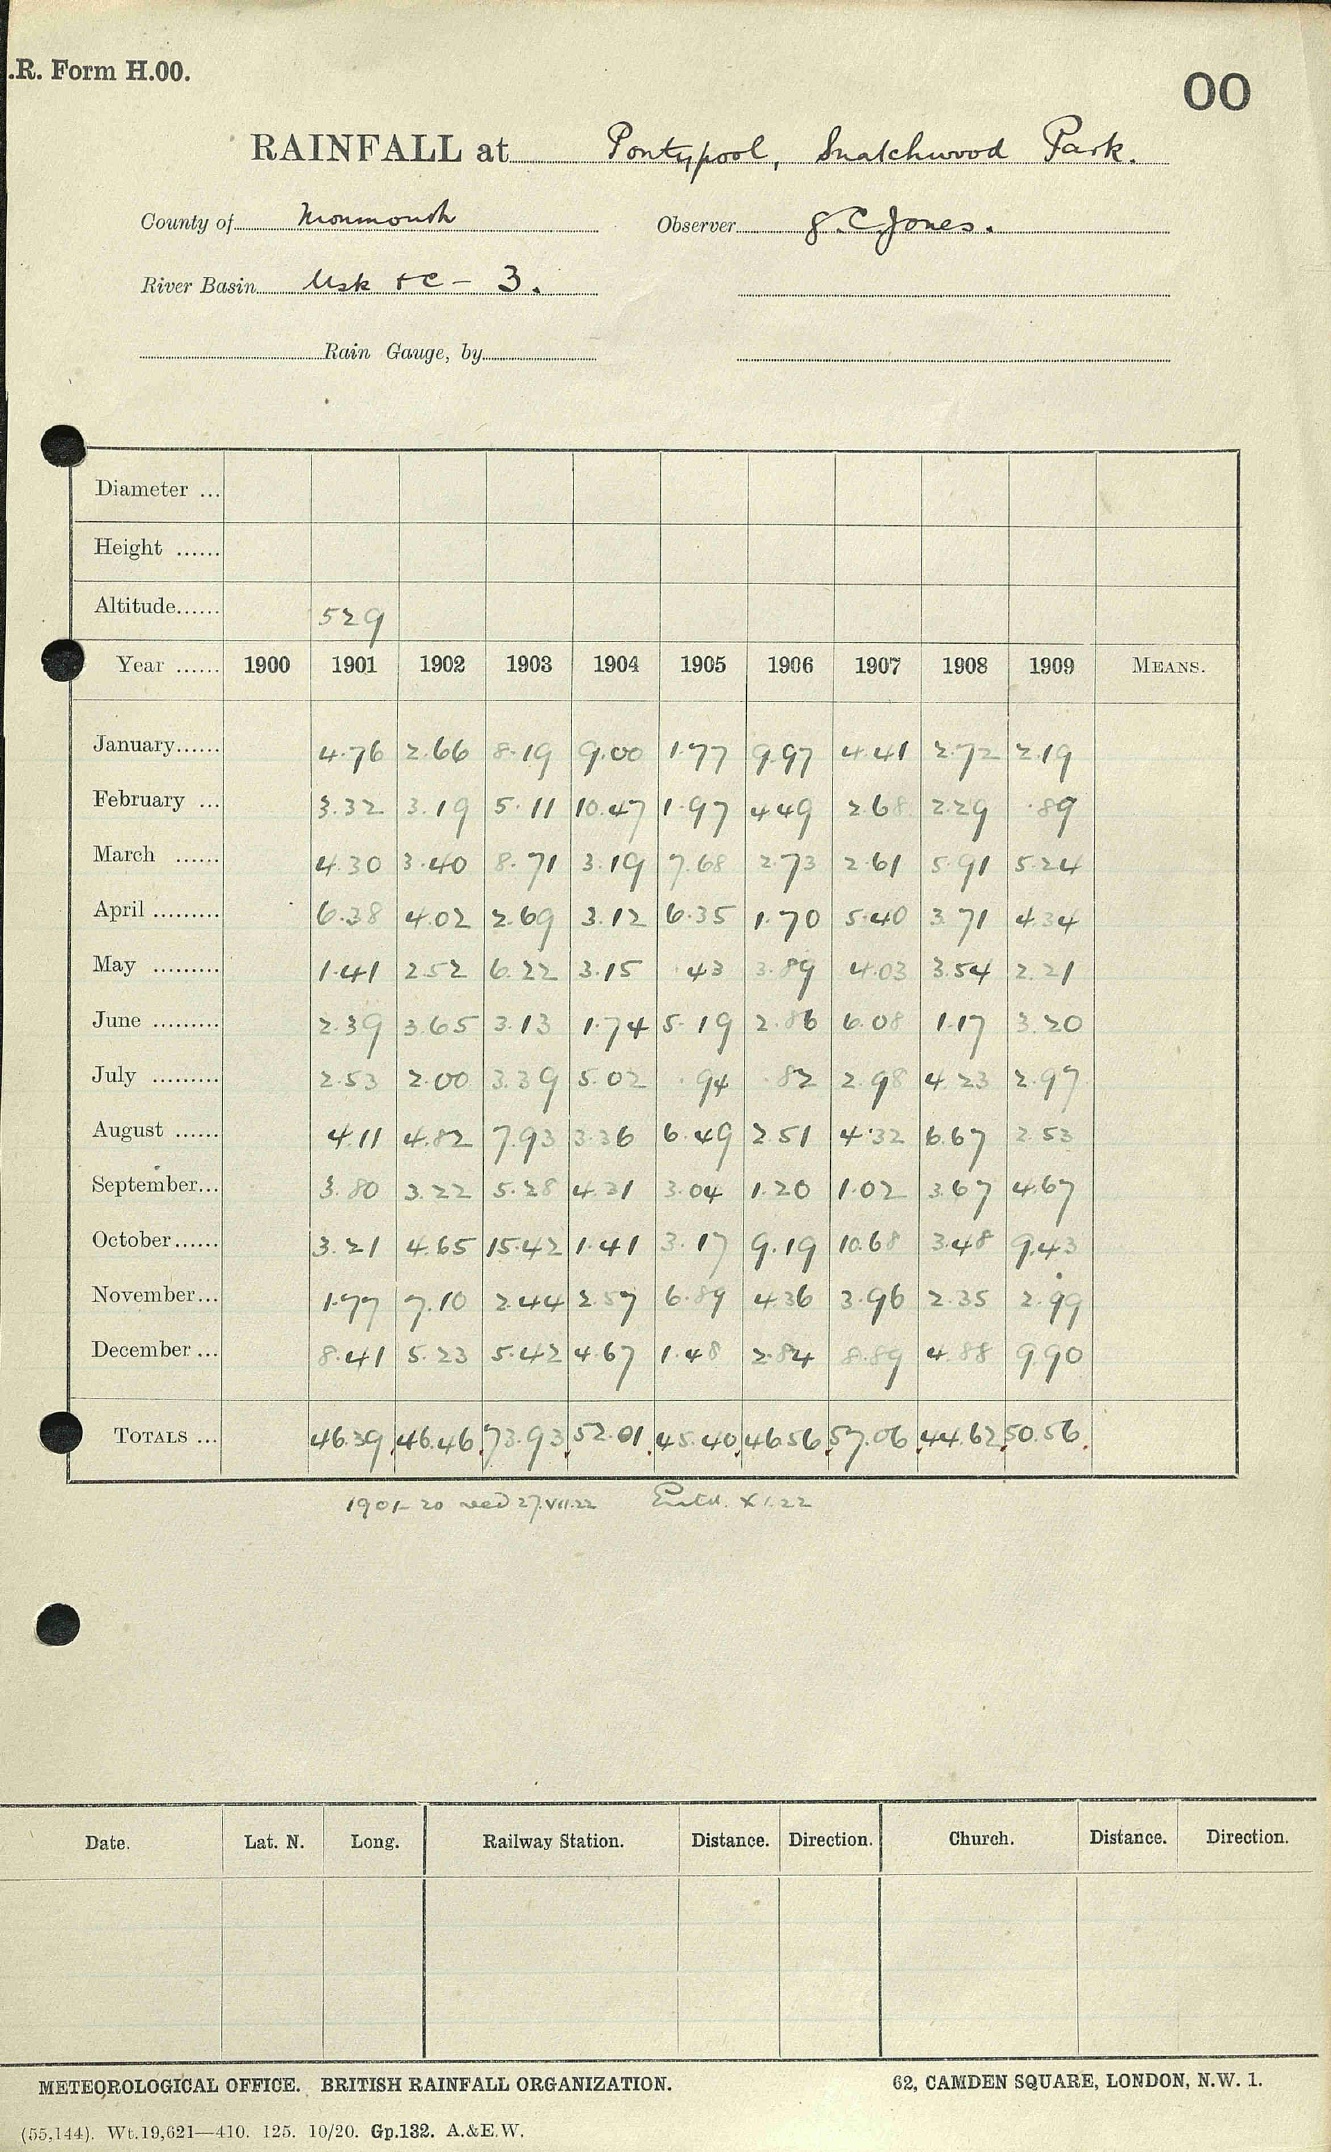 .R. Form H.00.
00
RAINFALL at Pontypool, Snatchwood Park.
County of Monmouth Observer C. Jones.
River Basin Usk &c - 3.
Rain Gauge, by
Diameter ...
Height ......
Altitude...... 529
Year ...... 1900 1901 1902 1903 1904 1905 1906 1907 1908 1909 MEANS.
January...... 4.76 2.66 8.19 9.00 1.77 9.97 4.41 2.72 2.19
February ... 3.32 3.19 5.11 10.47 1.97 4.49 2.68 2.29 .89
March ...... 4.30 3.40 8.71 3.19 7.68 2.73 2.61 5.91 5.24
April ......... 6.38 4.02 2.69 3.12 6.35 1.70 5.40 3.71 4.34
May ......... 1.41 2.52 6.22 3.15 .43 3.89 4.03 3.54 2.21
June ......... 2.39 3.65 3.13 1.74 5.19 2.86 6.08 1.17 3.20
July ......... 2.53 2.00 3.39 5.02 .94 .82 2.98 4.23 2.97
August ...... 4.11 4.82 7.93 3.36 6.49 2.51 4.32 6.67 2.53
September... 3.80 3.22 5.28 4.31 3.04 1.20 1.02 3.67 4.67
October...... 3.21 4.65 15.42 1.41 3.17 9.19 10.68 3.48 9.43
November... 1.77 7.10 2.44 2.57 6.89 4.36 3.96 2.35 2.99
December ... 8.41 5.23 5.42 4.67 1.48 2.84 8.89 4.88 9.90
TOTALS ... 46.39 46.46 73.93 52.01 45.40 46.56 57.06 44.62 50.56
1901-20 recd 27.VII.22 Entd. XI.22
Date. Lat. N. Long. Railway Station. Distance. Direction. Church. Distance. Direction.
METEOROLOGICAL OFFICE. BRITISH RAINFALL ORGANIZATION. 62, CAMDEN SQUARE, LONDON, N.W. 1.
(55,144). Wt.19,621—410. 125. 10/20. Gp.132. A.&E.W.